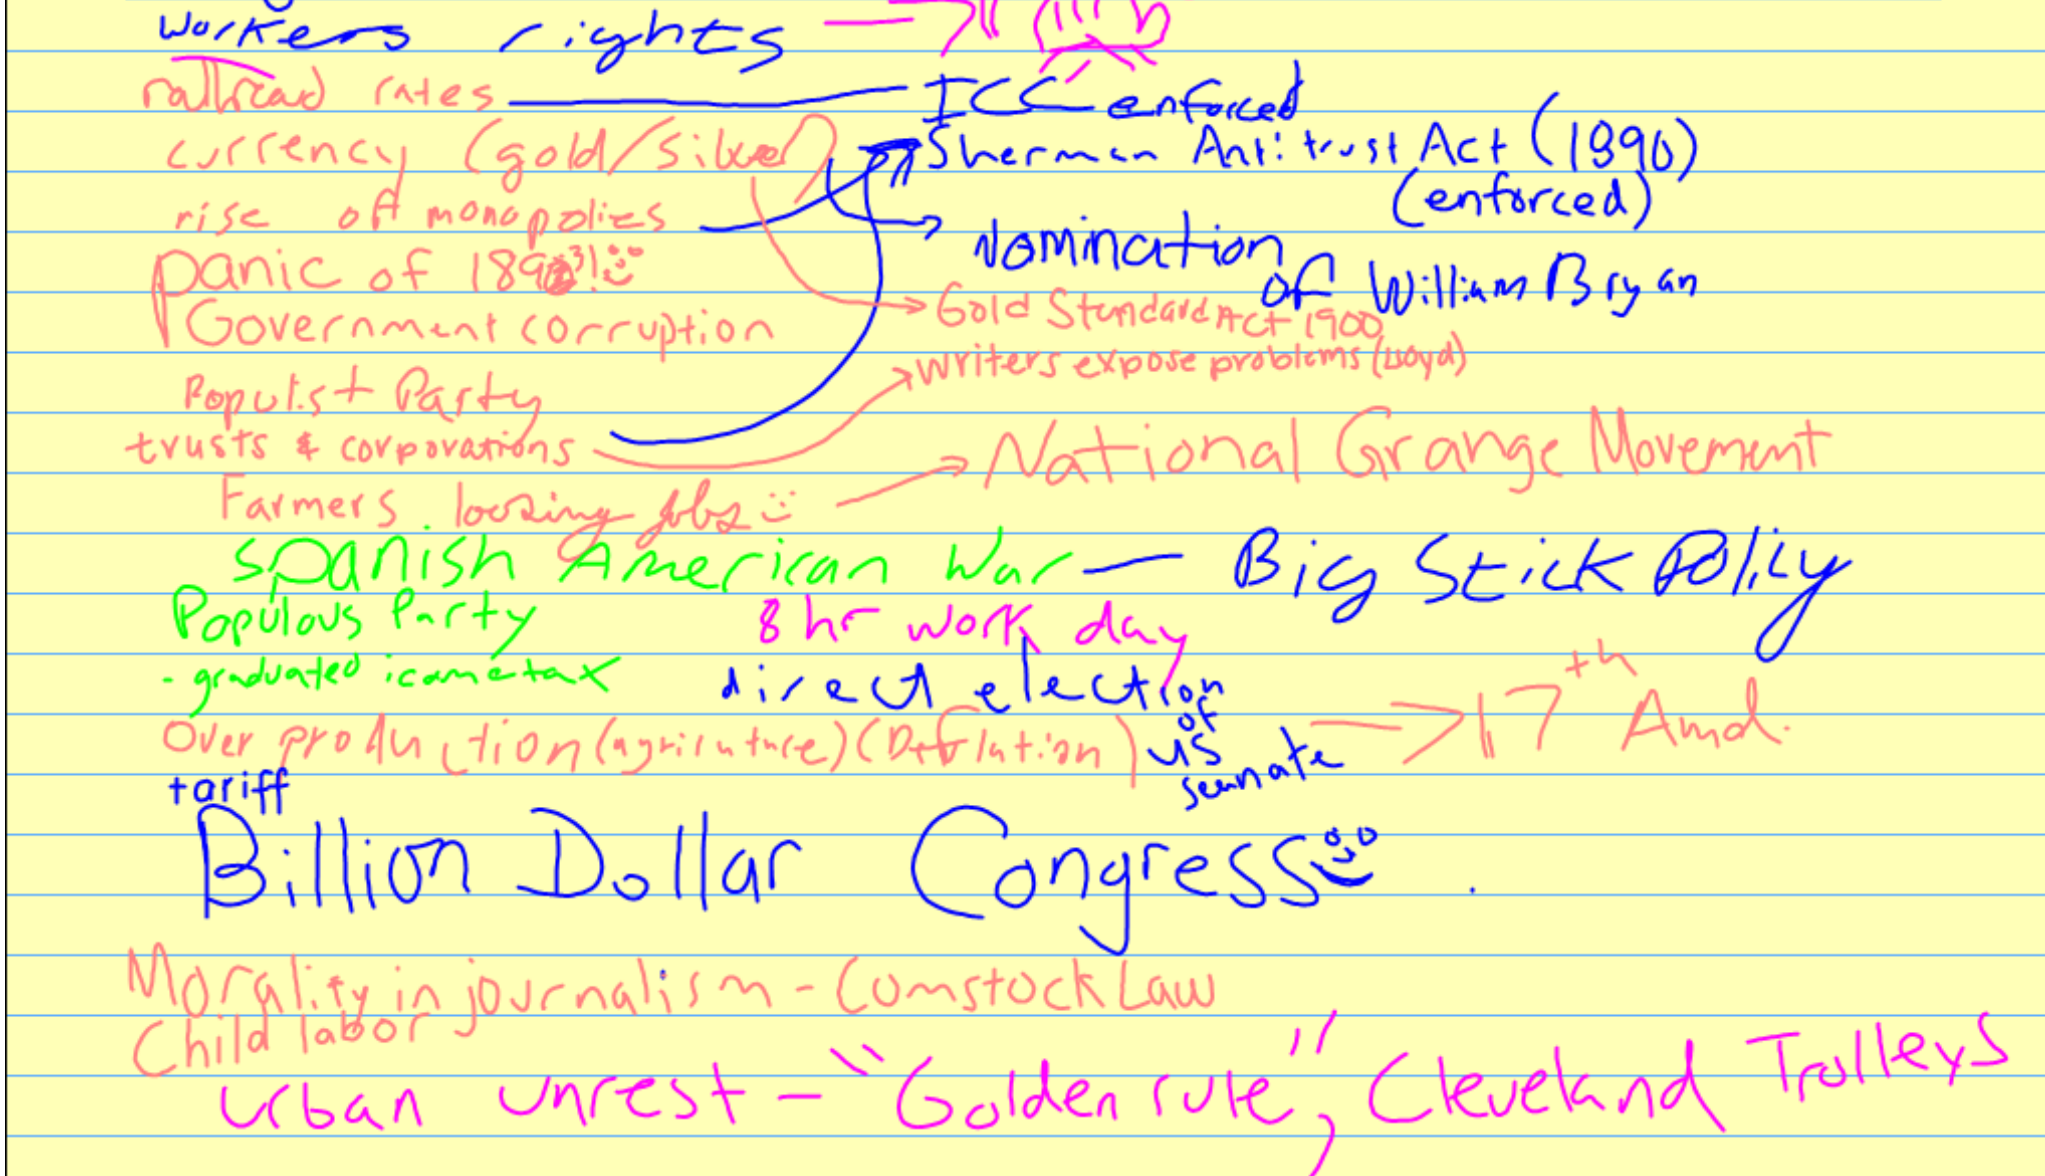 workers rights
railroad rates ICC enforced
currency (gold/silver) Sherman Antitrust Act (1890)
(enforced)
rise of monopolies
Nomination
of William Bryan
panic of 1893!
Gold Standard Act 1900
Government corruption
writers expose problems (Lloyd)
Populist Party
trusts & corporations National Grange Movement
Farmers loosing jobs
Spanish American War — Big Stick Policy
Populous Party 8 hr work day
- graduated icome tax direct election
of
US
seunate
17th Amd.
Over production (agriculture) (Deflation)
tariff
Billion Dollar Congress
Morality in journalism - Comstock Law
Child labor
urban unrest - "Golden rule", Cleveland Trolleys